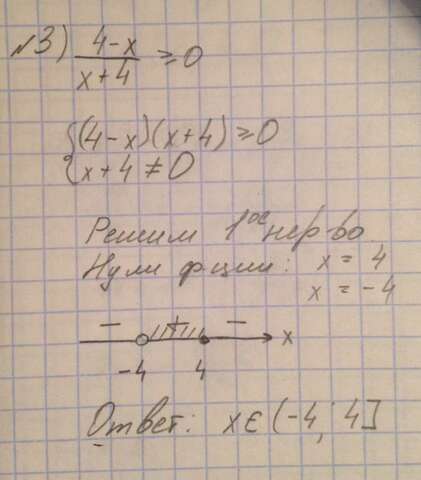 №3) (4-x)/(x+4) ≥ 0
{(4-x)(x+4) ≥ 0
{x+4 ≠ 0
Решим 1ое нер-во
Нули ф-ции: x = 4
x = -4
- + - x
-4 4
Ответ: x ∈ (-4; 4]